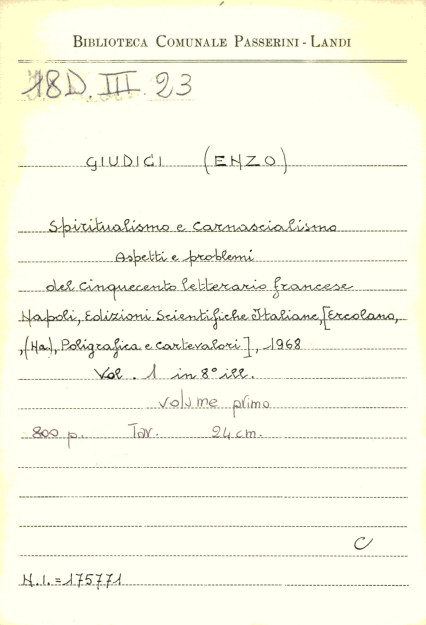 BIBLIOTECA COMUNALE PASSERINI - LANDI
18D. III. 23
GIUDICI (ENZO)
Spiritualismo e carnascialismo
Aspetti e problemi
del cinquecento letterario francese
Napoli, Edizioni Scientifiche Italiane, [Ercolano,
,(Na), Poligrafica e Cartevalori], 1968
Vol. 1 in 8° ill.
volume primo
800 p. Tav. 24 cm.
C
N.I. = 175771